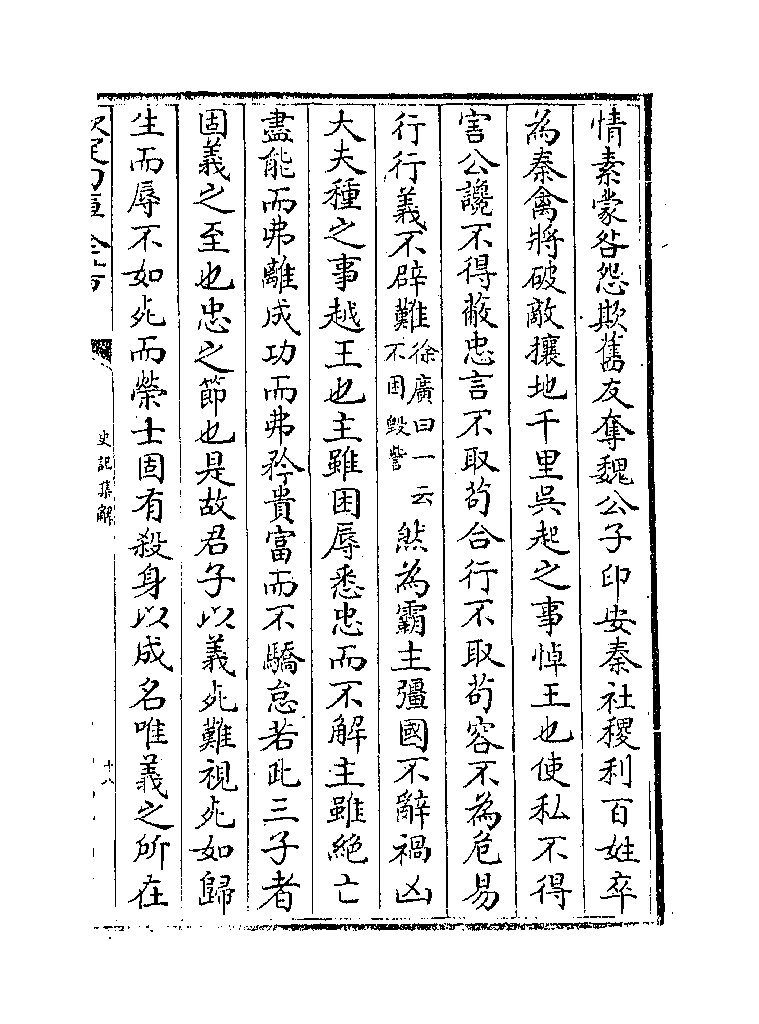 情素蒙咎怨欺舊友奪魏公子卬安秦社稷利百姓卒
為秦禽將破敵攘地千里吳起之事悼王也使私不得
害公讒不得蔽忠言不取茍合行不取茍容不為危易
行行義不辟難徐廣曰一云不困毀訾然為霸主彊國不辭禍凶
大夫種之事越王也主雖困辱悉忠而不解主雖絶亡
盡能而弗離成功而弗矜貴富而不驕怠若此三子者
固義之至也忠之節也是故君子以義死難視死如歸
生而辱不如死而榮士固有殺身以成名唯義之所在
史記集解
十八